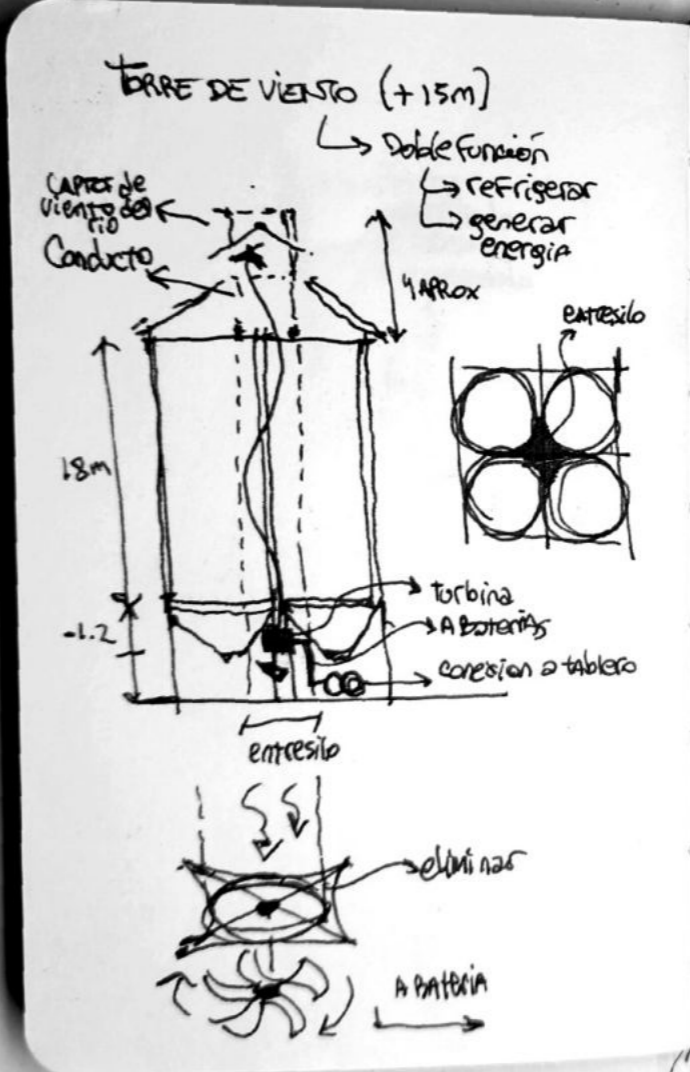 TORRE DE VIENTO (+15m)
Doble Función
refrigerar
generar
energia
CAPTOR de
viento del
rio
Conducto
4 APROX
entresilo
18m
-1.2
turbina
A Baterias
conexion a tablero
entresilo
eliminar
A BATERIA